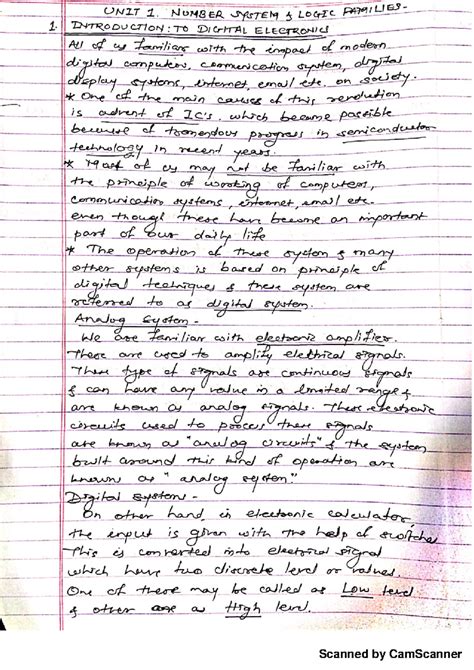 UNIT 1. NUMBER SYSTEM & LOGIC FAMILIES-
1. INTRODUCTION: TO DIGITAL ELECTRONICS
All of us familiar with the impact of modern
digital computers, communication system, digital
display systems, internet, email etc. on society.
* One of the main causes of this revolution
is advent of IC's, which became possible
because of tremendous progress in semiconductor
technology in recent years.
* Most of us may not be familiar with
the principle of working of computers,
communication systems, internet, email etc.
even though these have become an important
part of our daily life
* The operation of these system & many
other systems is based on principle of
digital techniques & these system are
referred to as digital system.
Analog System-
We are familiar with electronic amplifier.
These are used to amplify electrical signals.
These type of signals are continuous signals
& can have any value in a limited range &
are known as analog signals. These electronic
circuits used to process these signals
are known as "analog circuits" & the system
built around this kind of operation are
known as "analog system."
Digital system-
On other hand, in electronic calculator,
the input is given with the help of switches
This is converted into electrical signal
which have two discrete level or values.
One of these may be called as Low level
& other as High level.
Scanned by CamScanner